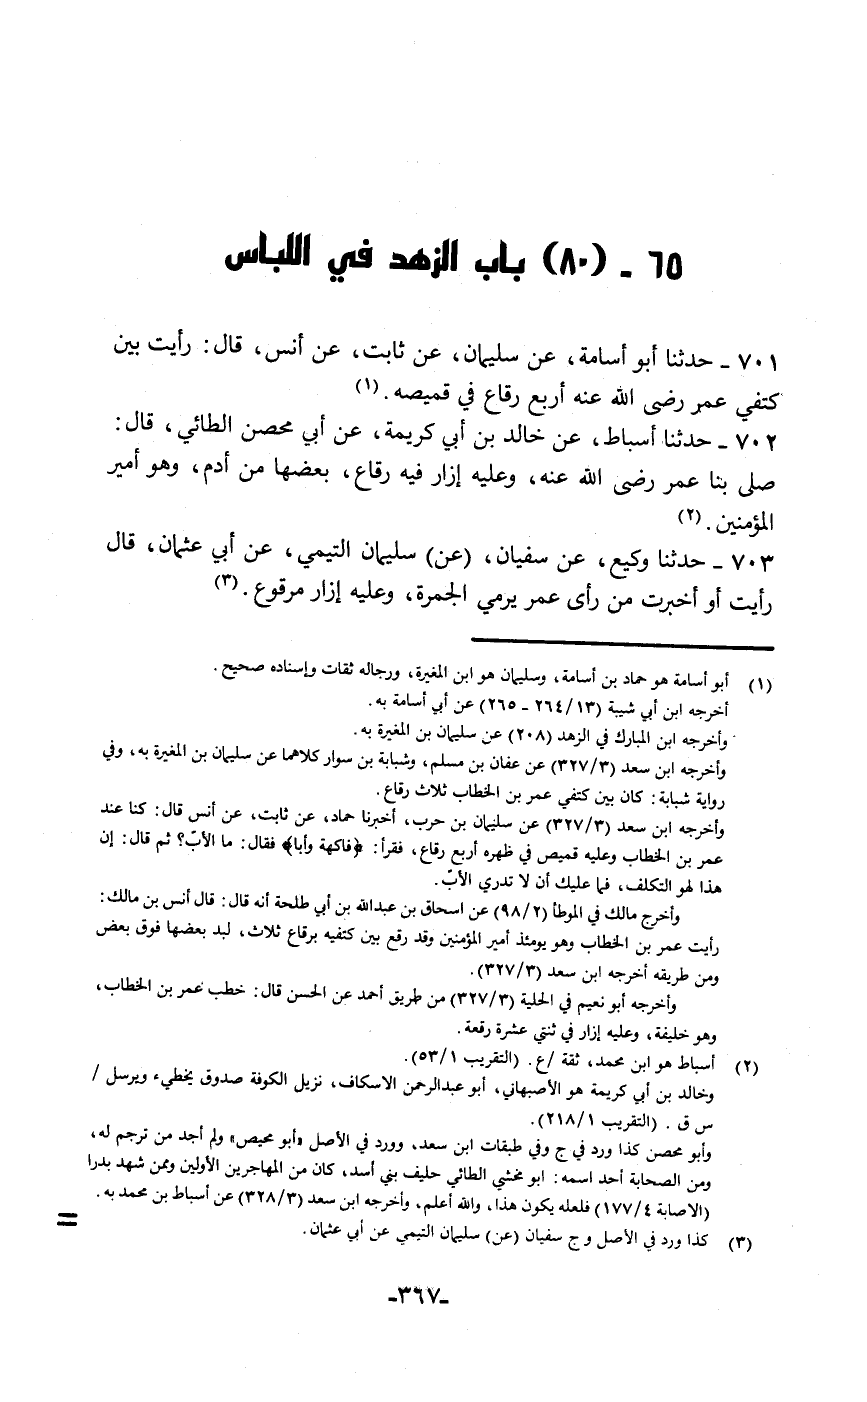 ٦٥ ـ (٨٠) باب الزهد في اللباس
٧٠١ ـ حدثنا أبو أسامة، عن سليمان، عن ثابت، عن أنس، قال: رأيت بين
كتفي عمر رضى الله عنه أربع رقاع في قميصه. (١)
٧٠٢ ـ حدثنا أسباط، عن خالد بن أبي كريمة، عن أبي محصن الطائي، قال:
صلى بنا عمر رضى الله عنه، وعليه إزار فيه رقاع، بعضها من أدم، وهو أمير
المؤمنين. (٢)
٧٠٣ ـ حدثنا وكيع، عن سفيان، (عن) سليمان التيمي، عن أبي عثمان، قال
رأيت أو أخبرت من رأى عمر يرمي الجمرة، وعليه إزار مرقوع. (٣)
(١) أبو أسامة هو حماد بن أسامة، وسليمان هو ابن المغيرة، ورجاله ثقات وإسناده صحيح.
أخرجه ابن أبي شيبة (١٣/ ٢٦٤ ـ ٢٦٥) عن أبي أسامة به.
وأخرجه ابن المبارك في الزهد (٢٠٨) عن سليمان بن المغيرة به.
وأخرجه ابن سعد (٣/ ٣٢٧) عن عفان بن مسلم، وشبابة بن سوار كلاهما عن سليمان بن المغيرة به، وفي
رواية شبابة: كان بين كتفي عمر بن الخطاب ثلاث رقاع.
وأخرجه ابن سعد (٣/ ٣٢٧) عن سليمان بن حرب، أخبرنا حماد، عن ثابت، عن أنس قال: كنا عند
عمر بن الخطاب وعليه قميص في ظهره أربع رقاع، فقرأ: ﴿فاكهة وأبا﴾ فقال: ما الأبّ؟ ثم قال: إن
هذا لهو التكلف، فما عليك أن لا تدري الأبّ.
وأخرج مالك في الموطأ (٢/ ٩٨) عن اسحاق بن عبدالله بن أبي طلحة أنه قال: قال أنس بن مالك:
رأيت عمر بن الخطاب وهو يومئذ أمير المؤمنين وقد رقع بين كتفيه برقاع ثلاث، لبد بعضها فوق بعض
ومن طريقه أخرجه ابن سعد (٣/ ٣٢٧).
وأخرجه أبو نعيم في الحلية (٣/ ٣٢٧) من طريق أحمد عن الحسن قال: خطب عمر بن الخطاب،
وهو خليفة، وعليه إزار في ثنتي عشرة رقعة.
(٢) أسباط هو ابن محمد، ثقة /ع. (التقريب ١/ ٥٣).
وخالد بن أبي كريمة هو الأصبهاني، أبو عبدالرحمن الاسكاف، نزيل الكوفة صدوق يخطيء ويرسل /
س ق. (التقريب ١/ ٢١٨).
وأبو محصن كذا ورد في ج وفي طبقات ابن سعد، وورد في الأصل «أبو محيص» ولم أجد من ترجم له،
ومن الصحابة أحد اسمه: ابو مخشي الطائي حليف بني أسد، كان من المهاجرين الأولين وممن شهد بدرا
(الاصابة ٤/ ١٧٧) فلعله يكون هذا، والله أعلم، وأخرجه ابن سعد (٣/ ٣٢٨) عن أسباط بن محمد به.
(٣) كذا ورد في الأصل و ج سفيان (عن) سليمان التيمي عن أبي عثمان.
=
ـ٣٦٧ـ